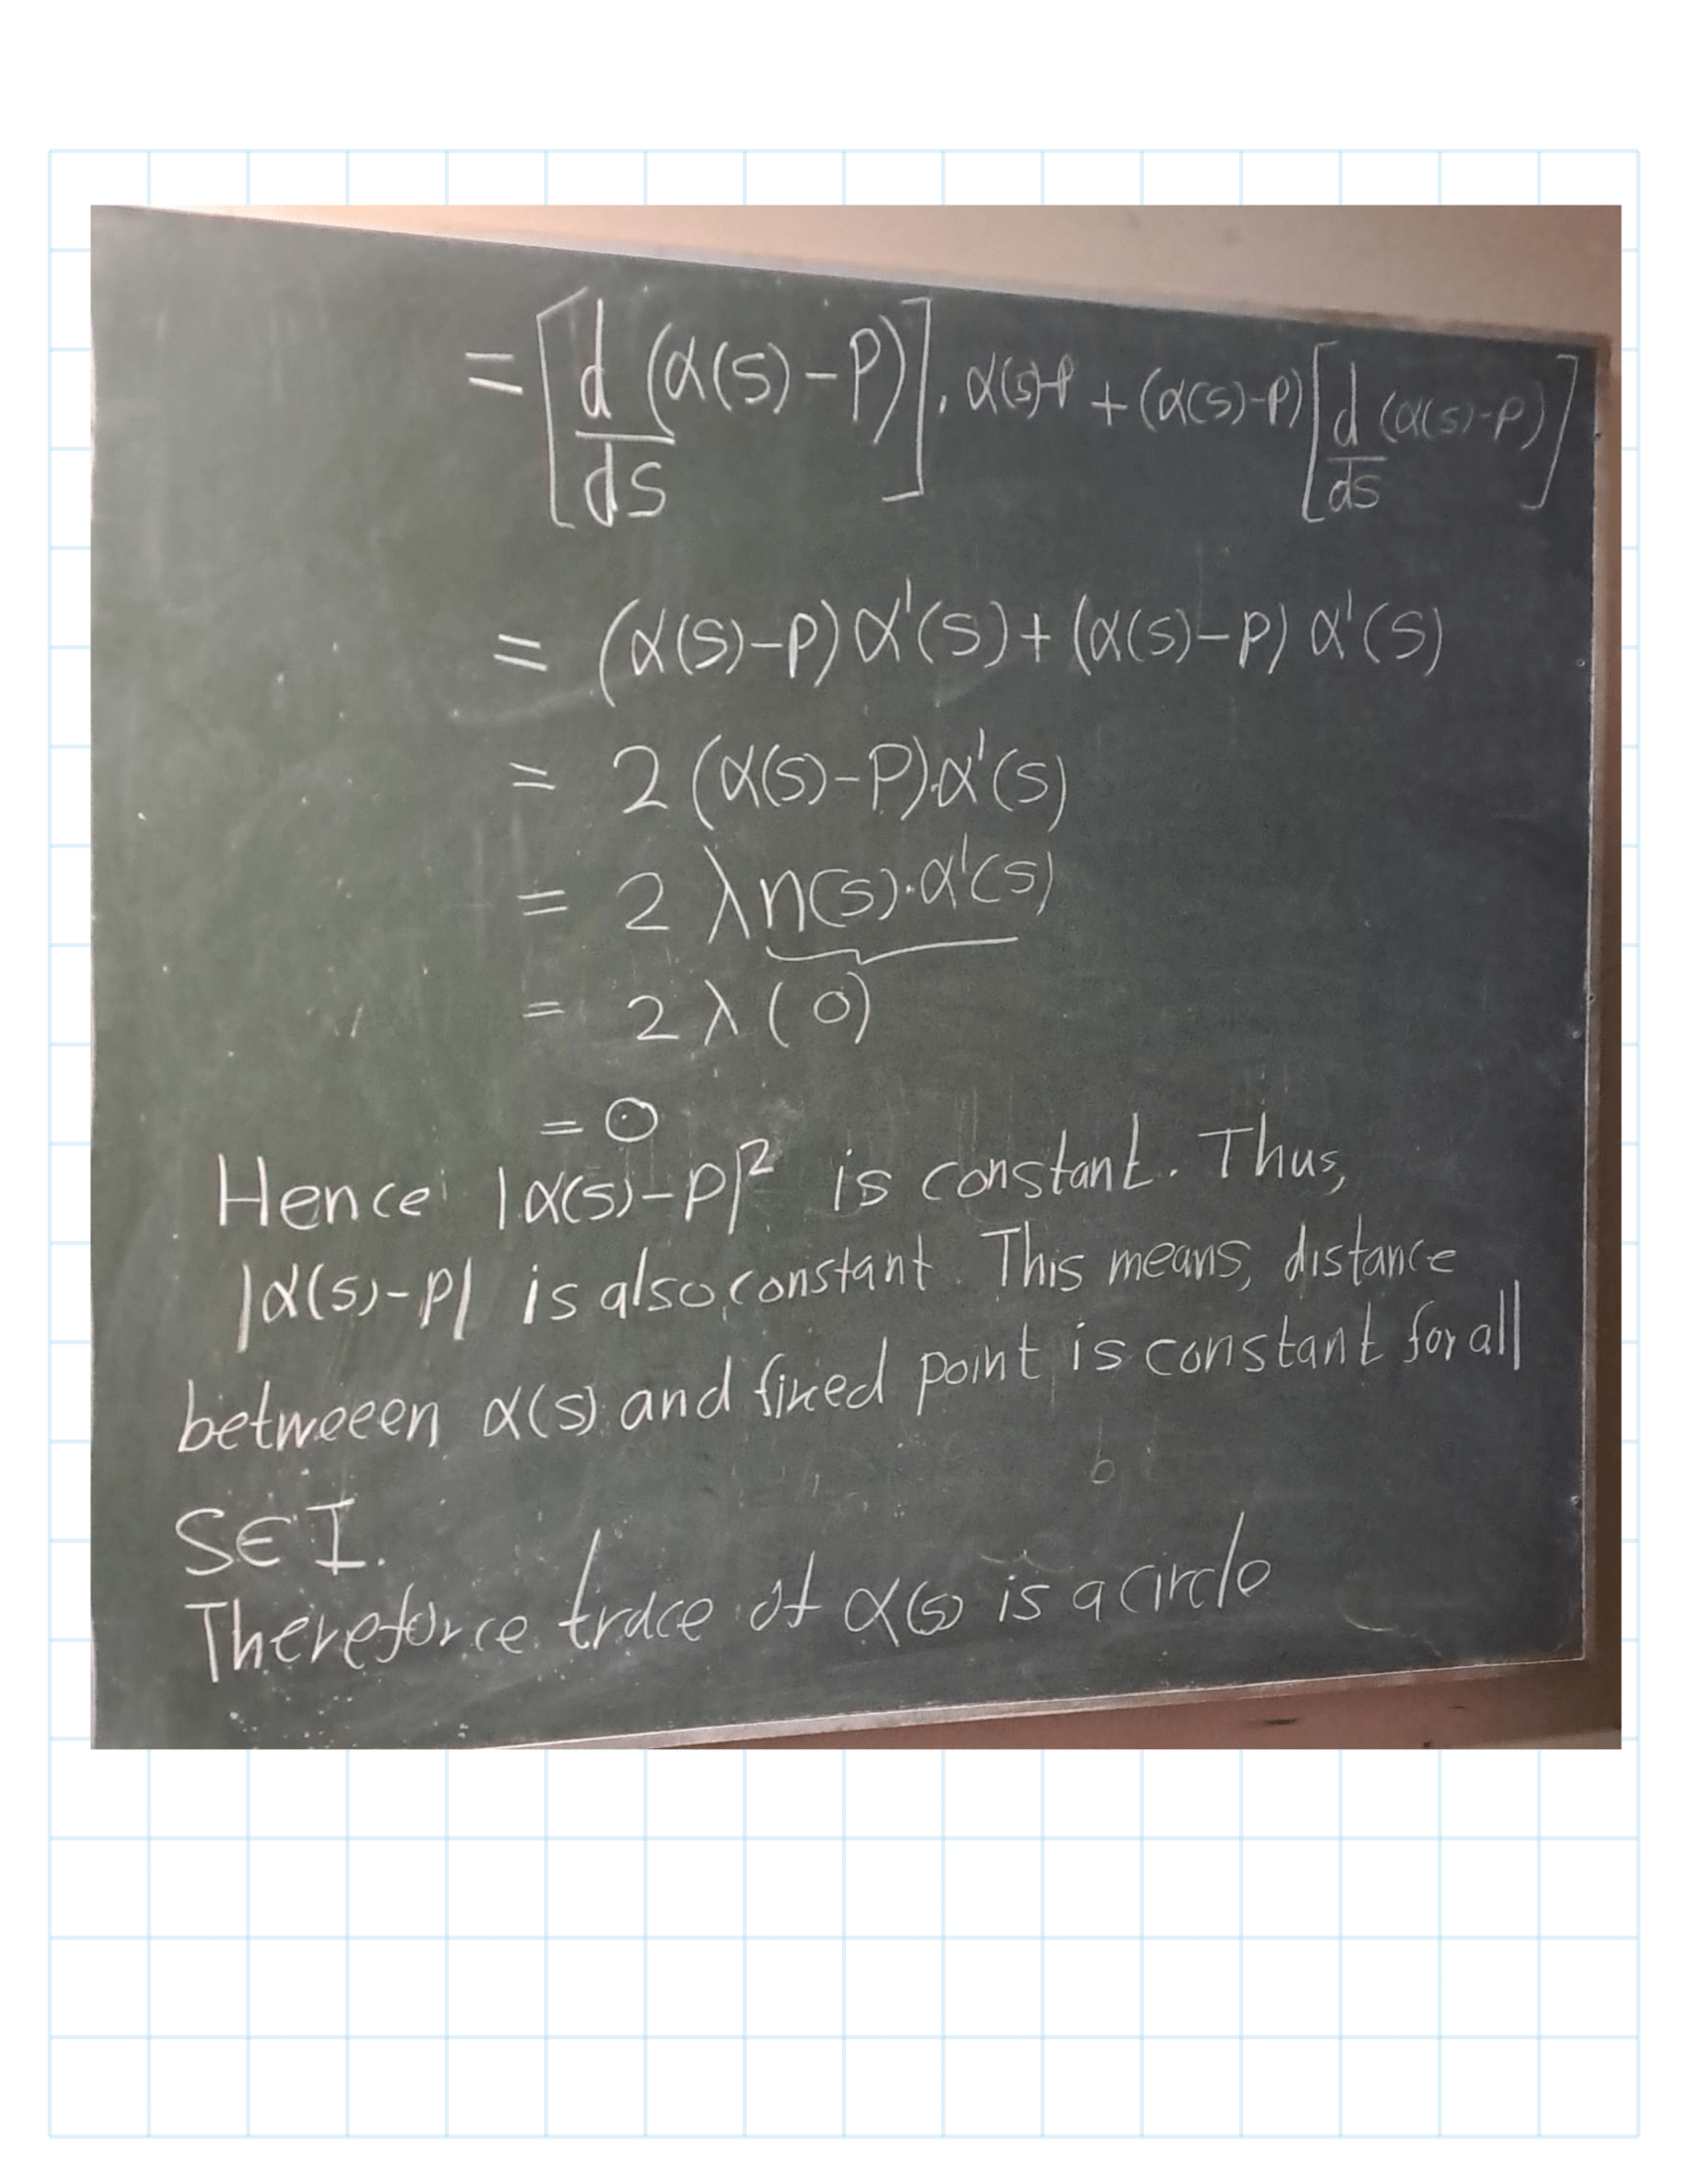 = [d/ds (α(s)-P)] . α(s)-P + (α(s)-P) [d/ds (α(s)-P)]
= (α(s)-P) α'(s) + (α(s)-P) α'(s)
= 2 (α(s)-P).α'(s)
= 2 λ n(s).α'(s)
= 2 λ (0)
= 0
Hence |α(s)-P|² is constant. Thus,
|α(s)-P| is also constant. This means, distance
betweeen α(s) and fixed point is constant for all
S∈I.
Thereforce trace of α(s) is a circle